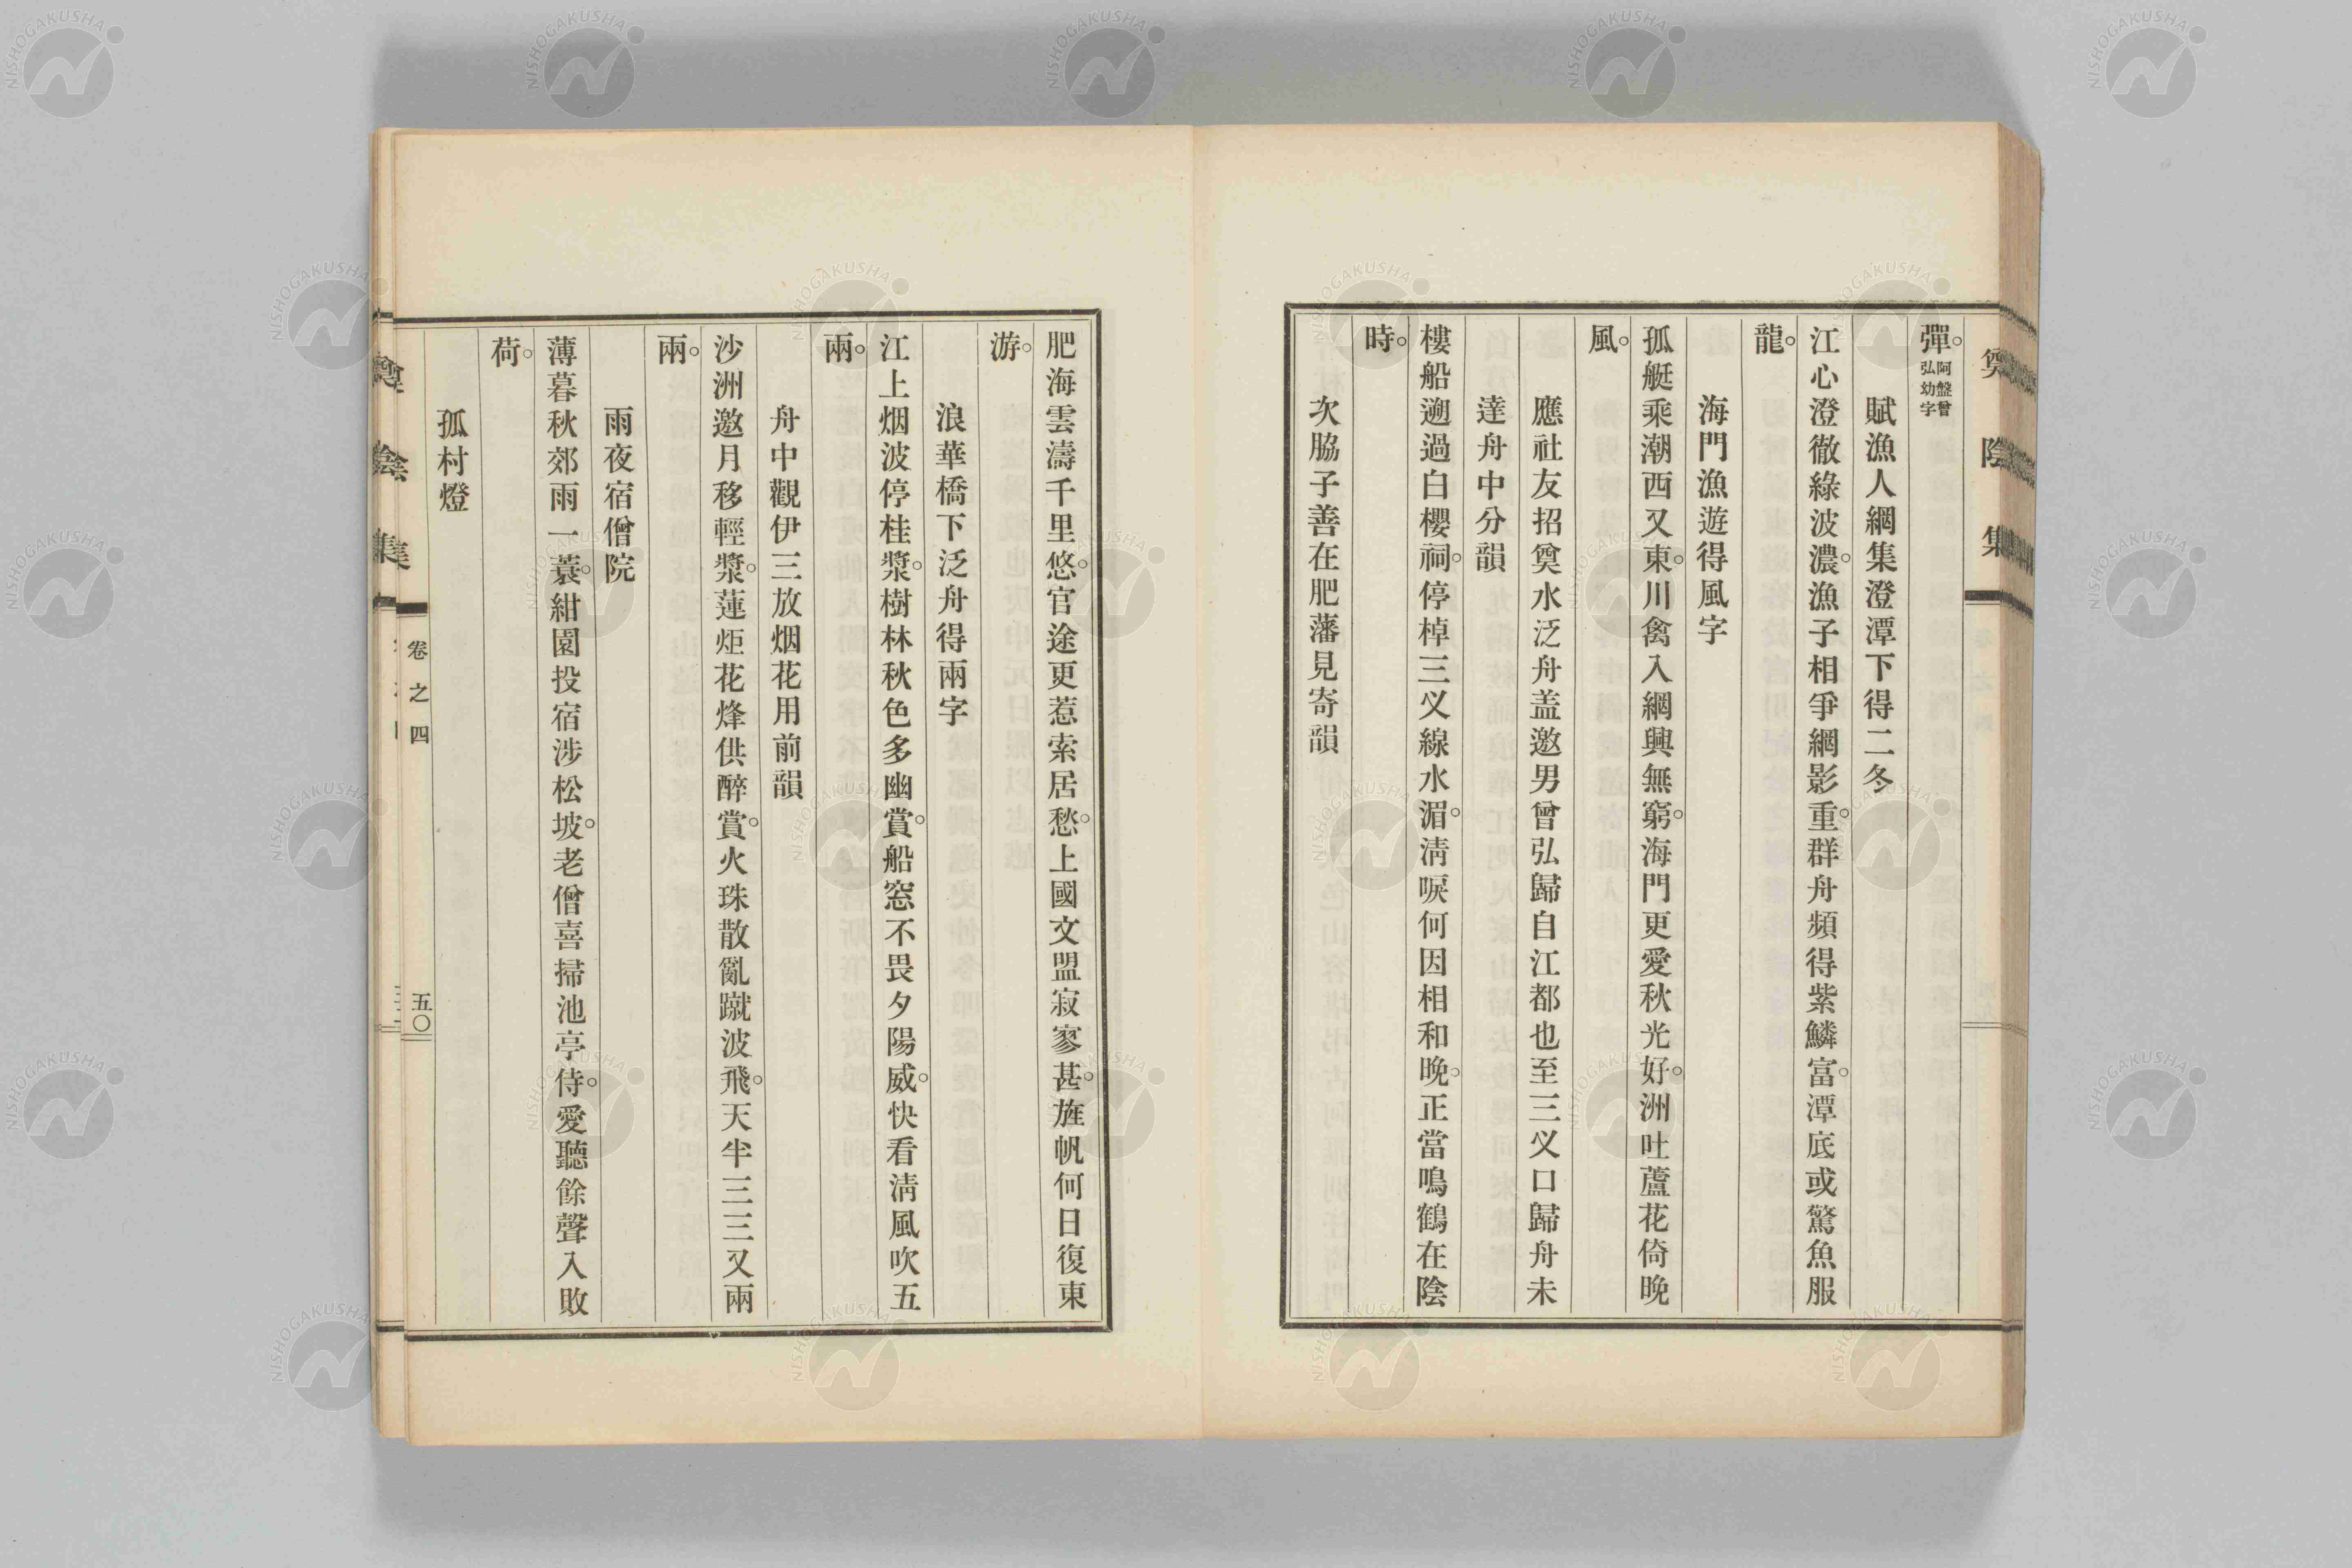 奠陰集
彈。阿盤曾弘幼字
賦漁人網集澄潭下得二冬
江心澄徹綠波濃。漁子相爭網影重。群舟頻得紫鱗富。潭底或驚魚服
龍。
海門漁遊得風字
孤艇乘潮西又東。川禽入網興無窮。海門更愛秋光好。洲吐蘆花倚晚
風。
應社友招奠水泛舟盖邀男曾弘歸自江都也至三义口歸舟未
達舟中分韻
樓船遡過白櫻祠。停棹三义線水湄。淸唳何因相和晚。正當鳴鶴在陰
時。
次脇子善在肥藩見寄韻
肥海雲濤千里悠。官途更惹索居愁。上國文盟寂寥甚。旌帆何日復東
游。
浪華橋下泛舟得兩字
江上烟波停桂槳。樹林秋色多幽賞。船窓不畏夕陽威。快看淸風吹五
兩。
舟中觀伊三放烟花用前韻
沙洲邀月移輕槳。蓮炬花烽供醉賞。火珠散亂蹴波飛。天半三三又兩
兩。
雨夜宿僧院
薄暮秋郊雨一蓑。紺園投宿涉松坡。老僧喜掃池亭待。愛聽餘聲入敗
荷。
孤村燈
奠陰集
卷之四
五〇
NISHOGAKUSHA